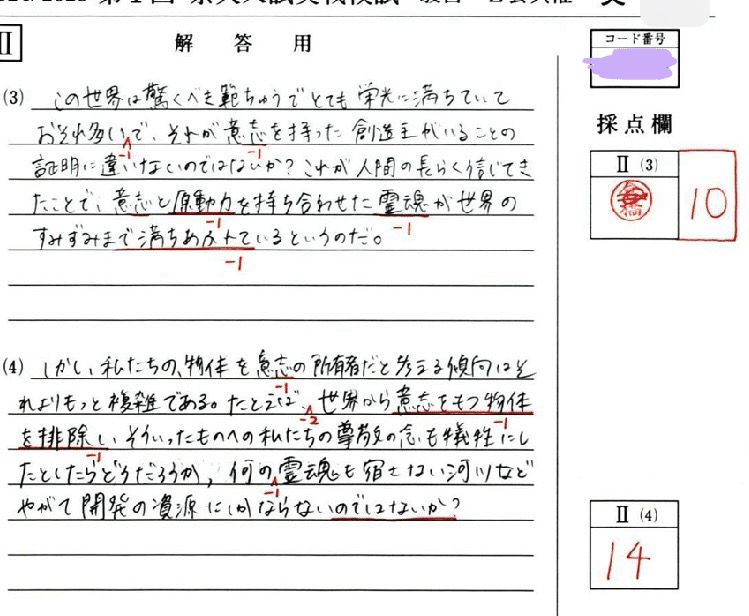 第1回
Ⅱ 解答用
コード番号
採点欄
(3) この世界は驚くべき範ちゅうでとても栄光に満ちていて
おそれ多いで、それが意志を持った創造主がいることの
-1 -1
証明に違いないのではないか?これが人間の長らく信じてき
たことで、意志と原動力を持ち合わせた霊魂が世界の
-1 -1
すみずみまで満ちあふれているというのだ。
-1
Ⅱ (3)
10
(4) しかし、私たちの、物体を意志の所有者だと考える傾向はそ
-1
れよりもっと複雑である。たとえば、世界から意志をもつ物体
-2 -1
を排除し、そういったものへの私たちの尊敬の念も犠牲にし
-1
たとしたらどうだろうか、何の霊魂も宿さない河川など
-1
やがて開発の資源にしかならないのではないか?
Ⅱ (4)
14